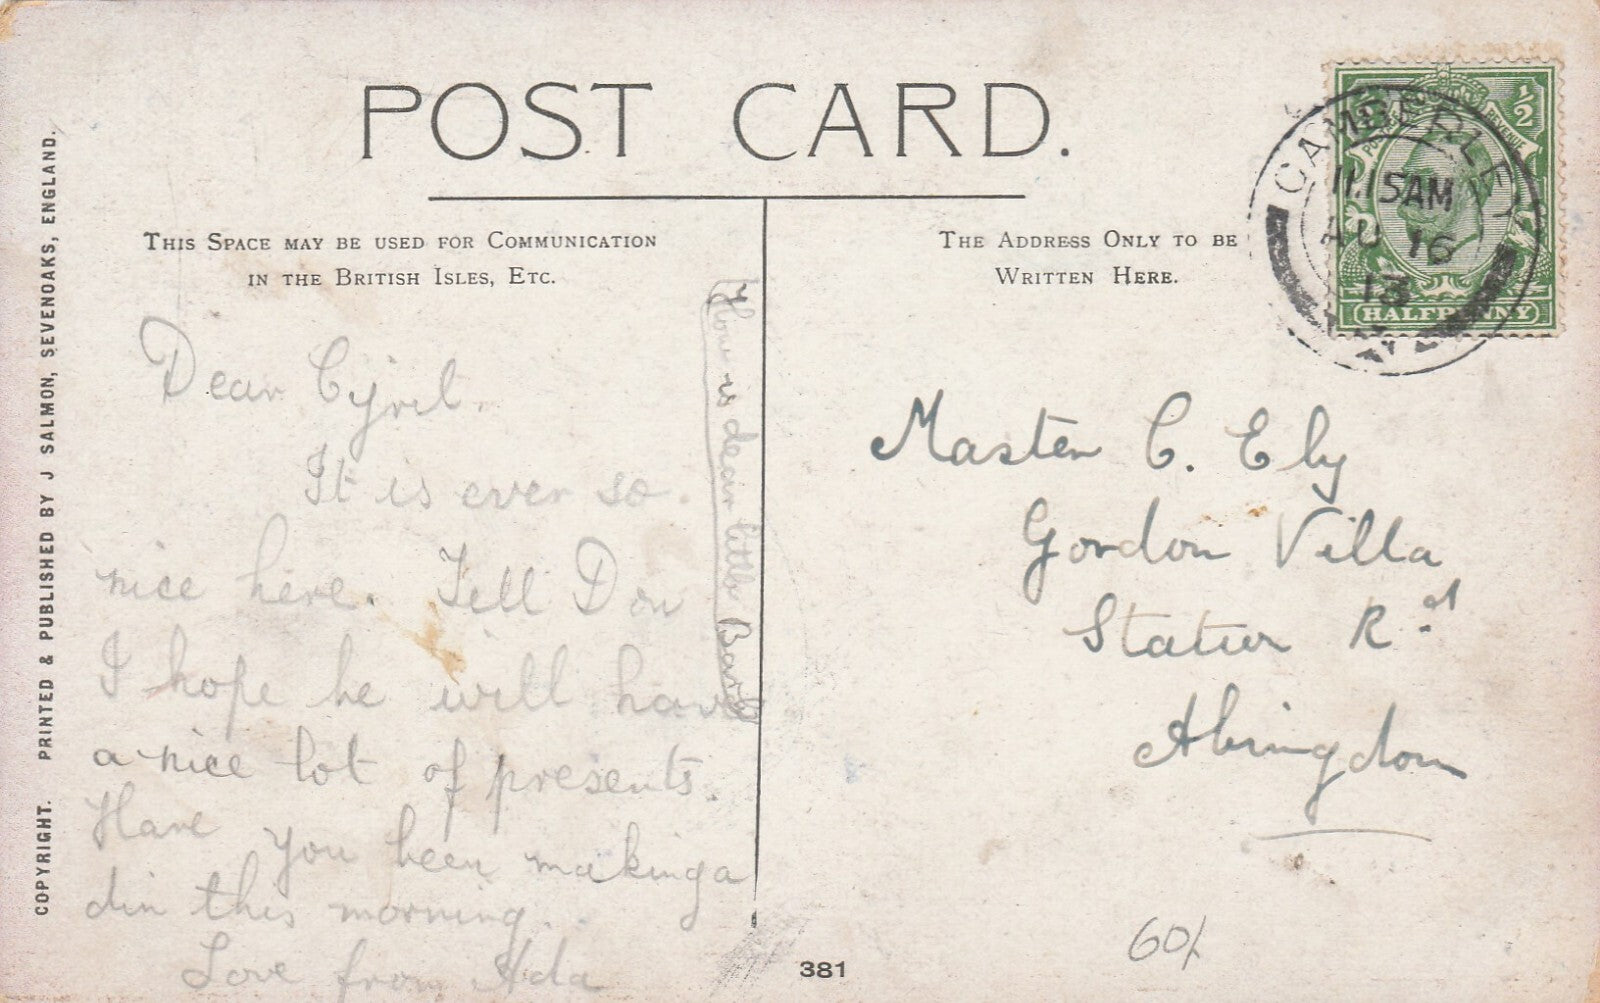 POST CARD.
THIS SPACE MAY BE USED FOR COMMUNICATION
IN THE BRITISH ISLES, ETC.
THE ADDRESS ONLY TO BE
WRITTEN HERE.
COPYRIGHT. PRINTED & PUBLISHED BY J SALMON, SEVENOAKS, ENGLAND.
Dear Cyril.
It is ever so.
nice here. Tell Don
I hope he will have
a nice lot of presents.
Have you been making a
din this morning.
Love from Ada
How is dear little
Master C. Ely
Gordon Villa
Station Rd
Abingdon
CAMBERLEY
11.15AM
AU 16
13
POSTAGE REVENUE
½
HALFPENNY
381
60/